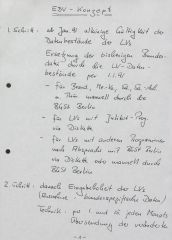 EDV - Konzept
1. Schritt: ab Jan. 91 alleinige Gültigkeit der
Datenbestände des LVs
Ersetzung der bisherigen Bundes-
datei durch die LV-Daten-
bestände per 1.1.91
- für Brand., Me-Vo, Sa, Sa-Anh
u. Thür manuell durch die
BGSt Berlin
- für LVs mit
via Diskette
- für LVs mit anderen Programmen
nach Absprache mit BGSt Berlin
via Diskette oder manuell durch
BGSt Berlin
2. Schritt: danach Eingabehoheit der LVs
(Ausnahme: bundesspezifische Daten)
Technik: pro 1. und 15. jeden Monats
Übersendung der veränderten
- 1 -